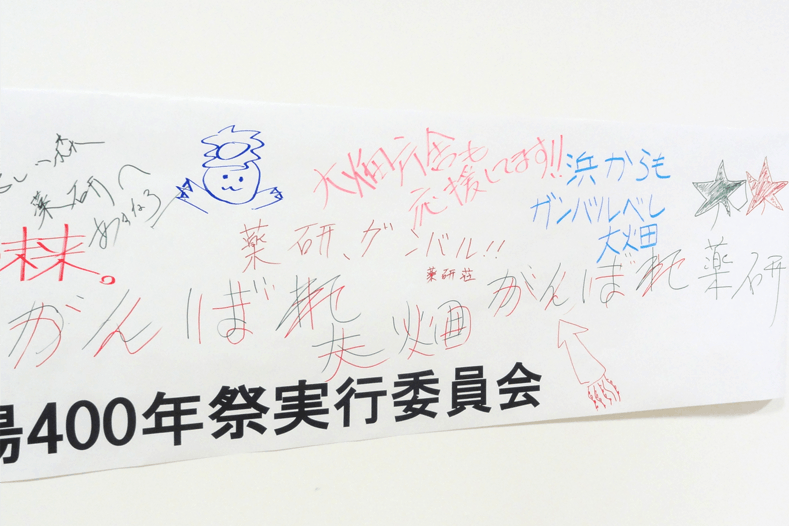 薬研へ
あすなろ
大畑元舎も
応援してます!!
浜からも
ガンバルベし
大畑
薬研、ガンバル!!
薬研荘
がんばれ
大畑
がんばれ薬研
場400年祭実行委員会